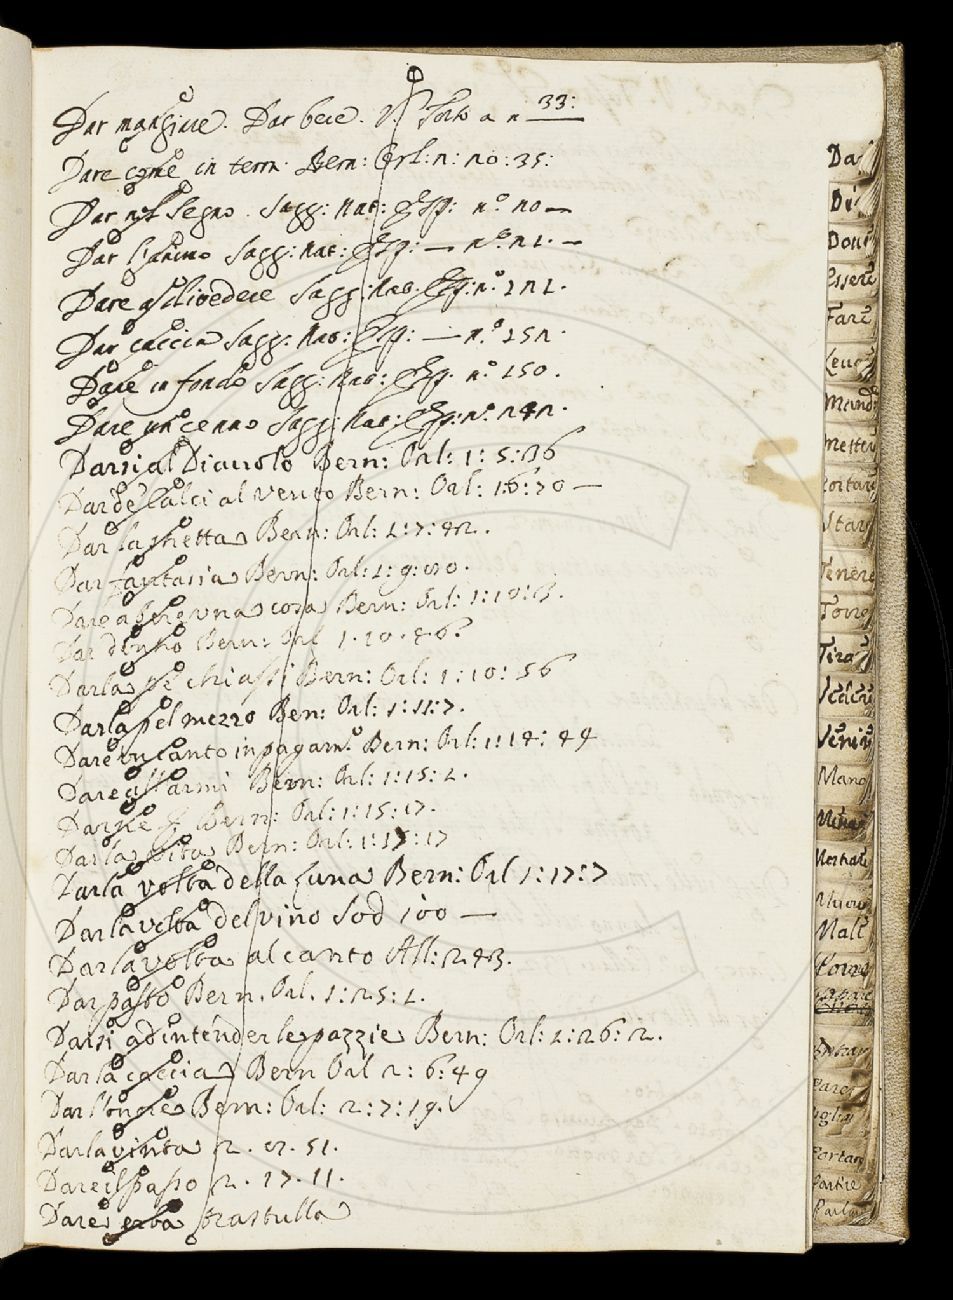 Dar mangiare. Dar bere. V. a n 33:
Dare come in terra. Bern: Orl: n: no: 35:
Dar nel segno. Sagg: Nat: Esp: n.º no —
Dar l'animo Sagg: Nat: Esp: — n.º n1. —
Dare a divedere Sagg: Nat. Esp: n.º 1n1.
Dar caccia Sagg: Nat: Esp: — n.º 15n.
Dare in fondo Sagg: Nat: Esp. n.º 150.
Dare un cenno Sagg: Nat: Esp: n.º n4n.
Darsi al Diavolo Bern: Orl: 1: 5: 36
Dar de calci al vento Bern: Orl: 16: 70 —
Dar la stretta Bern: Orl: 1: 7: 42.
Dar fantasia Bern: Orl: 1: 9:
Dare una cosa Bern: Orl: 1: 10:
Dar Bern: Orl 1. 10.
Darla pe chiassi Bern: Orl: 1: 10: 56
Darla pel mezzo Ben: Orl: 1: 11: 7.
Dare un canto in pagam.º Bern: Orl: 1: 14: 44
Dare all'armi Bern: Orl: 1: 15: 1.
Bern: Orl: 1: 15: 17.
Dar la vita Bern: Orl: 1: 17: 17
Dar la volta della Luna Bern: Orl 1: 17: 7
Dar la volta del vino Sod 100 —
Dar la volta al canto All: 243.
Dar pasto Bern. Orl. 1: 25: 1.
Darsi ad intender le pazzie Bern: Orl: 1: 26: 2.
Dar la caccia Bern Orl 2: 6: 49
Dar l'ongie Bern: Orl: 2: 7: 19.
Dar la vinta 2. 51.
Dare il passo 2. 17. 11.
Dare erba trastulla
Da
Di
Dov
Essere
Fare
Leva
Mand
Metter
Portare
Star
Tenere
Torre
Tira
Vedere
Venir
Mano
Mena
Mostrar
Muov
Mali
Entrar
Parer
Piglia
Portar
Partire
Parla